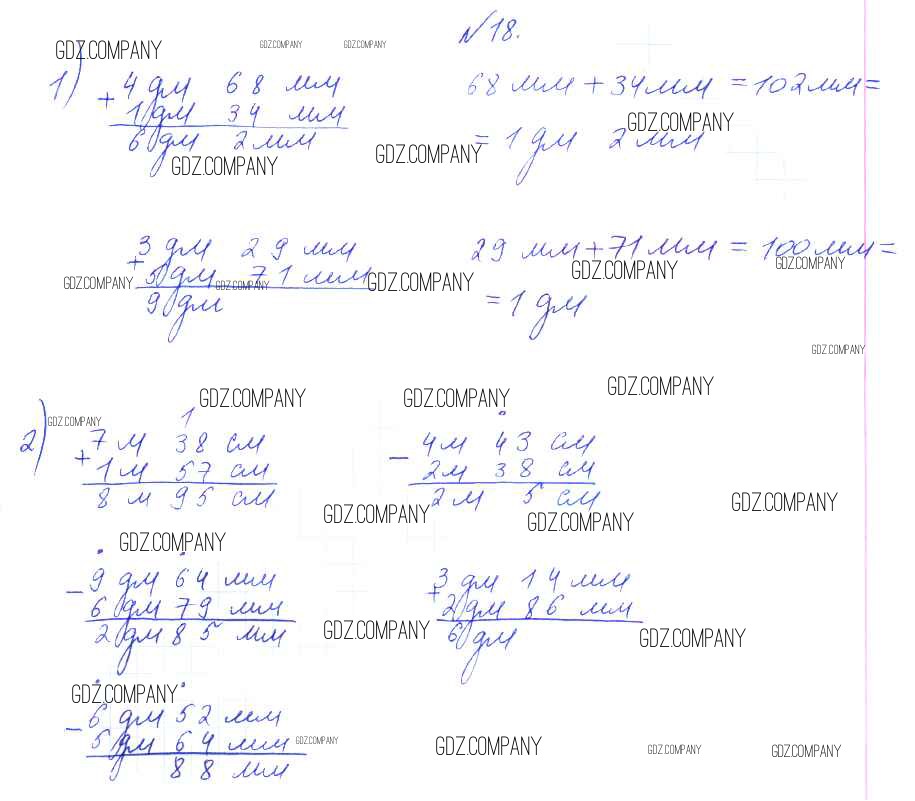 №18.
GDZ.COMPANY GDZ.COMPANY GDZ.COMPANY
1) + 4 дм 68 мм 68 мм + 34 мм = 102 мм =
1 дм 34 мм
GDZ.COMPANY
6 дм 2 мм = 1 дм 2 мм
GDZ.COMPANY GDZ.COMPANY
3 дм 29 мм 29 мм + 71 мм = 100 мм =
GDZ.COMPANY GDZ.COMPANY
+ 5 дм 71 мм
GDZ.COMPANY GDZ.COMPANY GDZ.COMPANY
9 дм = 1 дм
GDZ.COMPANY
GDZ.COMPANY GDZ.COMPANY GDZ.COMPANY
GDZ.COMPANY
1
2) + 7 м 38 см - 4 м 43 см
1 м 57 см 2 м 38 см
8 м 95 см 2 м 5 см
GDZ.COMPANY GDZ.COMPANY GDZ.COMPANY
GDZ.COMPANY
- 9 дм 64 мм + 3 дм 14 мм
6 дм 79 мм 2 дм 86 мм
2 дм 85 мм 6 дм
GDZ.COMPANY GDZ.COMPANY
GDZ.COMPANY
- 6 дм 52 мм
5 дм 64 мм
GDZ.COMPANY GDZ.COMPANY GDZ.COMPANY GDZ.COMPANY
88 мм